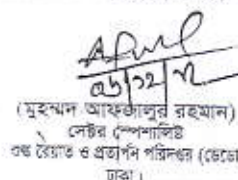 (মুহম্মদ আফজালুর রহমান)
সেক্টর স্পেশালিষ্ট
শুল্ক রেয়াত ও প্রত্যর্পন পরিদপ্তর (ডেডো)
ঢাকা।